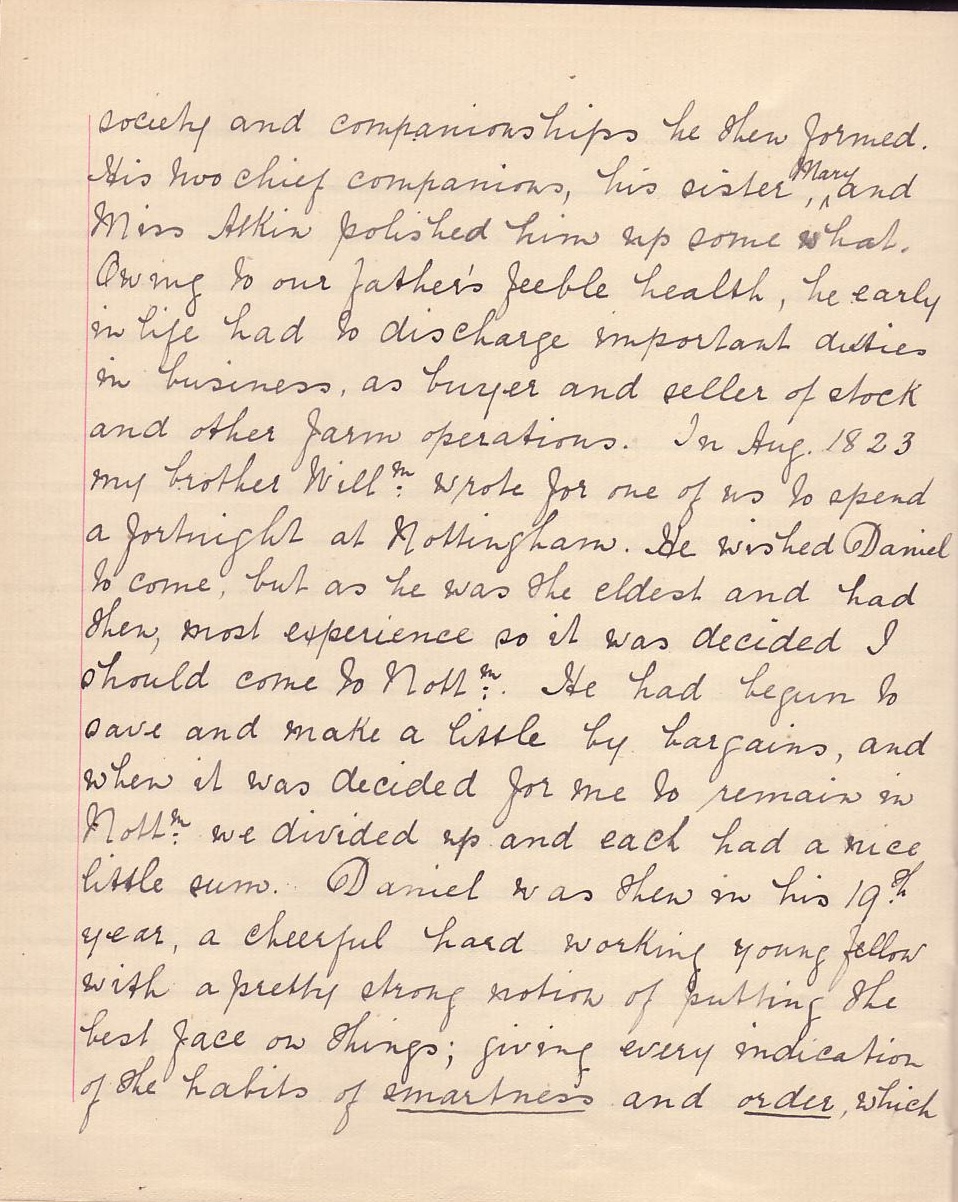 society and companionships he then formed.
His two chief companions, his sister, Mary and
Miss Atkin polished him up some what.
Owing to our father's feeble health, he early
in life had to discharge important duties
in business, as buyer and seller of stock
and other farm operations. In Aug. 1823
my brother Will.m wrote for one of us to spend
a fortnight at Nottingham. He wished Daniel
to come, but as he was the eldest and had
then, most experience so it was decided I
should come to Nott.m. He had begun to
save and make a little by bargains, and
when it was decided for me to remain in
Nott.m we divided up and each had a nice
little sum. Daniel was then in his 19th
year, a cheerful hard working young fellow
with a pretty strong notion of putting the
best face on things; giving every indication
of the habits of smartness and order, which